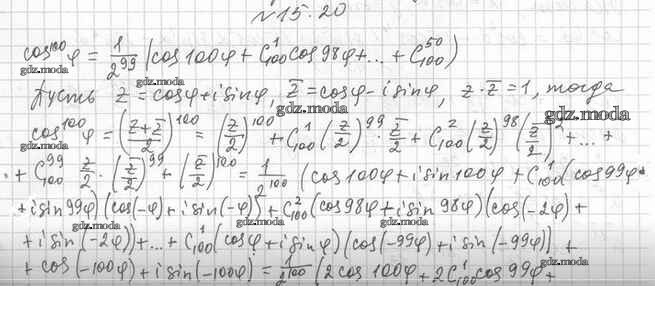 №15.20
cos¹⁰⁰φ = 1/2⁹⁹ (cos 100φ + C¹₁₀₀ cos 98φ + ... + C⁵⁰₁₀₀)
gdz.moda
gdz.moda
gdz.moda
Пусть z = cosφ + i sinφ, z̅ = cosφ - i sinφ, z · z̅ = 1, тогда
gdz.moda
gdz.moda
cos¹⁰⁰φ = ((z+z̅)/2)¹⁰⁰ = (z/2)¹⁰⁰ + C¹₁₀₀ (z/2)⁹⁹ · z̅/2 + C²₁₀₀ (z/2)⁹⁸ (z̅/2)² + ... +
gdz.moda
+ C⁹⁹₁₀₀ z/2 · (z̅/2)⁹⁹ + (z̅/2)¹⁰⁰ = 1/2¹⁰⁰ (cos 100φ + i sin 100φ + C¹₁₀₀ (cos 99φ +
gdz.moda
+ i sin 99φ) (cos(-φ) + i sin(-φ)) + C²₁₀₀ (cos 98φ + i sin 98φ) (cos(-2φ) +
gdz.moda
gdz.moda
gdz.moda
+ i sin(-2φ)) + ... + C¹₁₀₀ (cosφ + i sinφ) (cos(-99φ) + i sin(-99φ)) +
gdz.moda
+ cos(-100φ) + i sin(-100φ) = 1/2¹⁰⁰ (2 cos 100φ + 2C¹₁₀₀ cos 99φ +